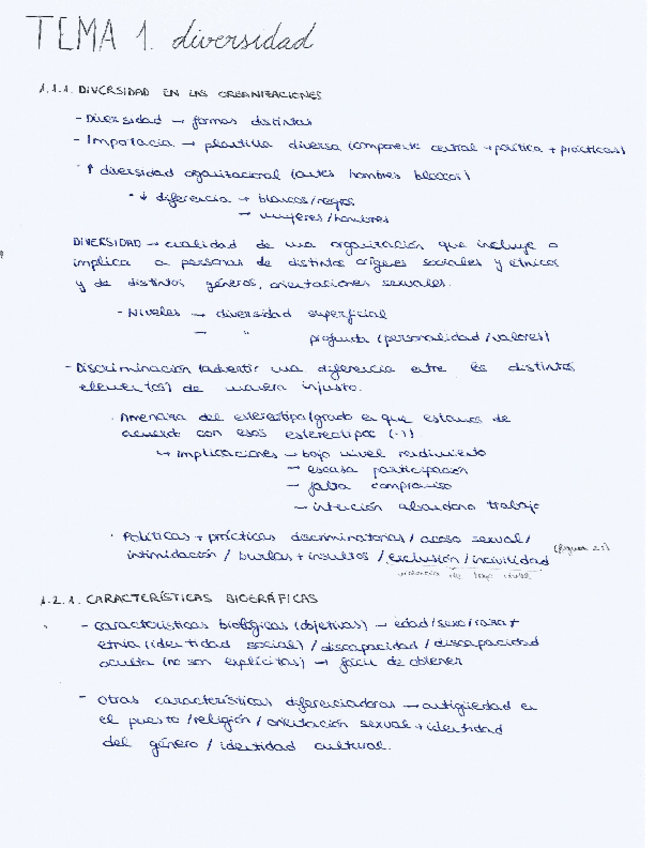 TEMA 1. diversidad
1.1.1. DIVERSIDAD EN LAS ORGANIZACIONES
- Diversidad → formas distintas
- Importacia → plantilla diversa (componente central → política + prácticas)
· ↑ diversidad organizacional (antes hombres blancos)
· ↓ diferencia → blancos/negros
→ mujeres/hombres
DIVERSIDAD → cualidad de una organización que incluye o
implica a personas de distintos orígenes sociales y étnicos
y de distintos géneros, orientaciones sexuales.
- Niveles → diversidad superficial
→ " profunda (personalidad/valores)
- Discriminación (advertir una diferencia entre los distintos
elementos) de manera injusta.
· Amenaza del estereotipo (grado en que estamos de
acuerdo con esos estereotipos (-))
↪ implicaciones → bajo nivel rendimiento
→ escasa participación
→ falta compromiso
→ intención abandono trabajo
· Políticas + prácticas discriminatorias / acoso sexual/
intimidación / burlas + insultos / exclusión / incivilidad (figura 2.1)
violencia de bajo nivel
1.2.1. CARACTERÍSTICAS BIOGRÁFICAS
- características biológicas (objetivas) → edad/sexo/raza +
etnia (identidad social) / discapacidad / discapacidad
oculta (no son explícitas) → fácil de obtener
- otras características diferenciadoras → antigüedad en
el puesto / religión / orientación sexual + identidad
del género / identidad cultural.